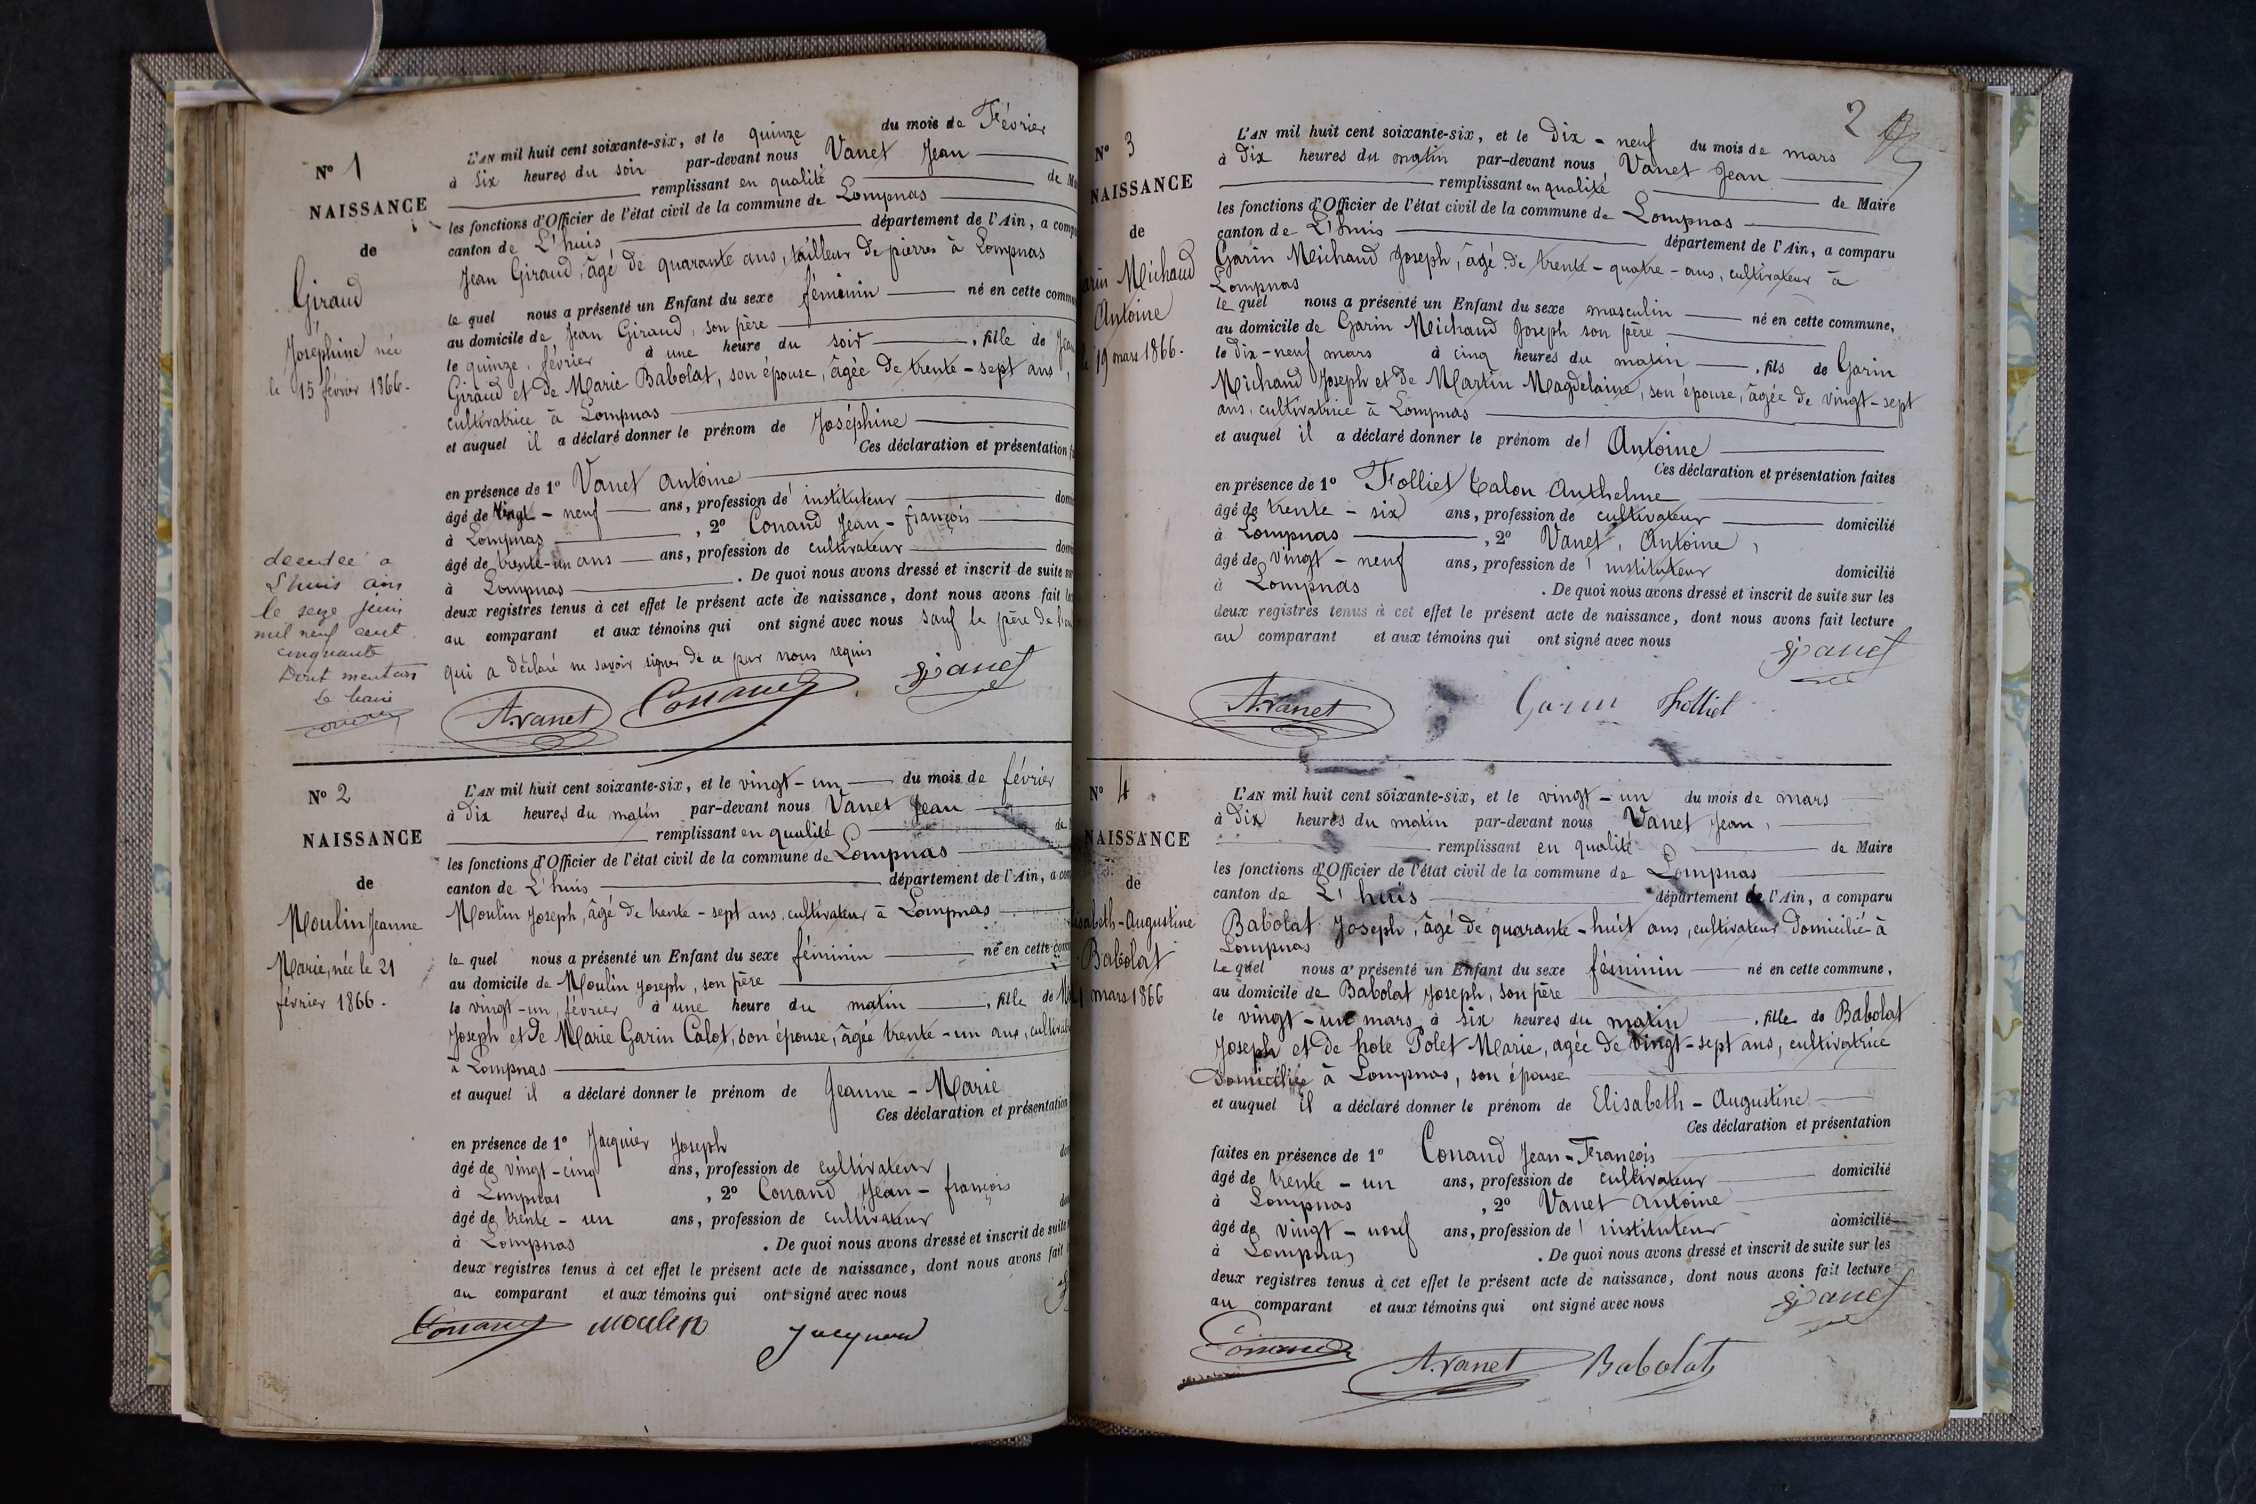 N° 1
NAISSANCE
de
Giraud
Joséphine née
le 15 février 1866.
décédée à
L'huis ain
le seize juin
mil neuf cent
cinquante
Dont mention
Le Maire
L'AN mil huit cent soixante-six, et le quinze du mois de Février
à six heures du soir par-devant nous Vanet Jean
remplissant en qualité de
les fonctions d'Officier de l'état civil de la commune de Lompnas
canton de L'huis département de l'Ain, a
Jean Giraud, âgé de quarante ans, tailleur de pierres à Lompnas
le quel nous a présenté un Enfant du sexe féminin né en cette
au domicile de Jean Giraud, son père
le quinze, février à une heure du soir, fille de
Giraud et de Marie Babolat, son épouse, âgée de trente-sept ans,
cultivatrice à Lompnas
et auquel il a déclaré donner le prénom de Joséphine
Ces déclaration et présentation
en présence de 1° Vanet Antoine
âgé de vingt-neuf ans, profession de instituteur
à Lompnas, 2° Conand Jean-françois
âgé de trente-un ans ans, profession de cultivateur
à Lompnas. De quoi nous avons dressé et inscrit de suite
deux registres tenus à cet effet le présent acte de naissance, dont nous avons fait
au comparant et aux témoins qui ont signé avec nous sauf le père de
qui a déclaré ne savoir signer de ce par nous requis
A. Vanet Conand J Vanet
N° 2
NAISSANCE
de
Moulin Jeanne
Marie, née le 21
février 1866.
L'AN mil huit cent soixante-six, et le vingt-un du mois de février
à dix heures du matin par-devant nous Vanet Jean
remplissant en qualité de
les fonctions d'Officier de l'état civil de la commune de Lompnas
canton de L'huis département de l'Ain, a
Moulin Joseph, âgé de trente-sept ans, cultivateur à Lompnas
le quel nous a présenté un Enfant du sexe féminin né en cette
au domicile de Moulin Joseph, son père
le vingt-un, février à une heure du matin, fille de
Joseph et de Marie Garin Calot, son épouse, âgée trente-un ans,
à Lompnas
et auquel il a déclaré donner le prénom de Jeanne-Marie
Ces déclaration et présentation
en présence de 1° Jacquier Joseph
âgé de vingt-cinq ans, profession de cultivateur
à Lompnas, 2° Conand Jean-françois
âgé de trente-un ans, profession de cultivateur
à Lompnas. De quoi nous avons dressé et inscrit de suite
deux registres tenus à cet effet le présent acte de naissance, dont nous avons fait
au comparant et aux témoins qui ont signé avec nous
Conand Moulin Jacquier
2
N° 3
NAISSANCE
de
Michaud
Antoine
le 19 mars 1866.
L'AN mil huit cent soixante-six, et le Dix-neuf du mois de mars
à Dix heures du matin par-devant nous Vanet Jean
remplissant en qualité de Maire
les fonctions d'Officier de l'état civil de la commune de Lompnas
canton de L'huis département de l'Ain, a comparu
Garin Michaud Joseph, âgé de trente-quatre-ans, cultivateur à
Lompnas
le quel nous a présenté un Enfant du sexe masculin né en cette commune,
au domicile de Garin Michaud Joseph son père
le dix-neuf mars à cinq heures du matin, fils de Garin
Michaud Joseph et de Martin Magdelaine, son épouse, âgée de vingt-sept
ans, cultivatrice à Lompnas
et auquel il a déclaré donner le prénom de Antoine
Ces déclaration et présentation faites
en présence de 1° Folliet Talon Anthelme
âgé de trente-six ans, profession de cultivateur domicilié
à Lompnas, 2° Vanet, Antoine,
âgé de vingt-neuf ans, profession de instituteur domicilié
à Lompnas. De quoi nous avons dressé et inscrit de suite sur les
deux registres tenus à cet effet le présent acte de naissance, dont nous avons fait lecture
au comparant et aux témoins qui ont signé avec nous
J Vanet
A. Vanet Garin Folliet
N° 4
NAISSANCE
de
Augustine
Babolat
mars 1866
L'AN mil huit cent soixante-six, et le vingt-un du mois de mars
à Dix heures du matin par-devant nous Vanet Jean,
remplissant en qualité de Maire
les fonctions d'Officier de l'état civil de la commune de Lompnas
canton de L'huis département de l'Ain, a comparu
Babolat Joseph, âgé de quarante-huit ans, cultivateur domicilié à
Lompnas
le quel nous a présenté un Enfant du sexe féminin né en cette commune,
au domicile de Babolat Joseph, son père
le vingt-un mars à six heures du matin, fille de Babolat
Joseph et de Polet Marie, agée de vingt-sept ans, cultivatrice
Domiciliée à Lompnas, son épouse
et auquel il a déclaré donner le prénom de Elisabeth-Augustine
Ces déclaration et présentation
faites en présence de 1° Conand Jean-François
âgé de trente-un ans, profession de cultivateur domicilié
à Lompnas, 2° Vanet Antoine
âgé de vingt-neuf ans, profession de instituteur domicilié
à Lompnas. De quoi nous avons dressé et inscrit de suite sur les
deux registres tenus à cet effet le présent acte de naissance, dont nous avons fait lecture
au comparant et aux témoins qui ont signé avec nous
J Vanet
Conand A. Vanet Babolat